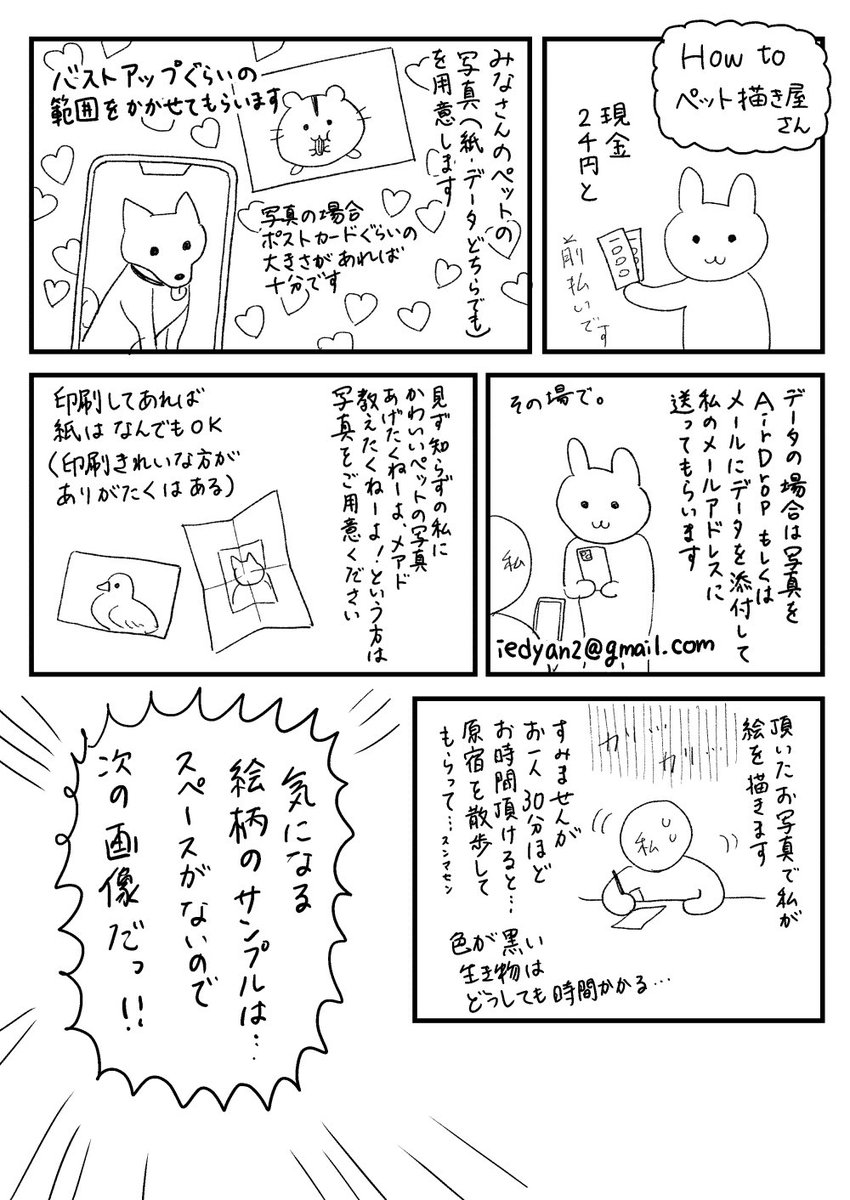 How to
ペット描き屋
さん
現金
2千円と
前払いです
1000
みなさんのペットの
写真(紙・データどちらでも)
を用意します
バストアップぐらいの
範囲をかかせてもらいます
写真の場合
ポストカードぐらいの
大きさがあれば
十分です
データの場合は写真を
AirDropもしくは
メールにデータを添付して
私のメールアドレスに
送ってもらいます
その場で。
私
iedyan2@gmail.com
見ず知らずの私に
かわいいペットの写真
あげたくねーよ、メアド
教えたくねーよ!という方は
写真をご用意ください
印刷してあれば
紙はなんでもOK
(印刷きれいな方が
ありがたくはある)
頂いたお写真で私が
絵を描きます
ガリ…
ガリ…
私
すみませんが
お一人30分ほど
お時間頂けると…
原宿を散歩して
もらって…スンマセン
色が黒い
生き物は
どうしても時間かかる…
気になる
絵柄のサンプルは…
スペースがないので
次の画像だっ!!